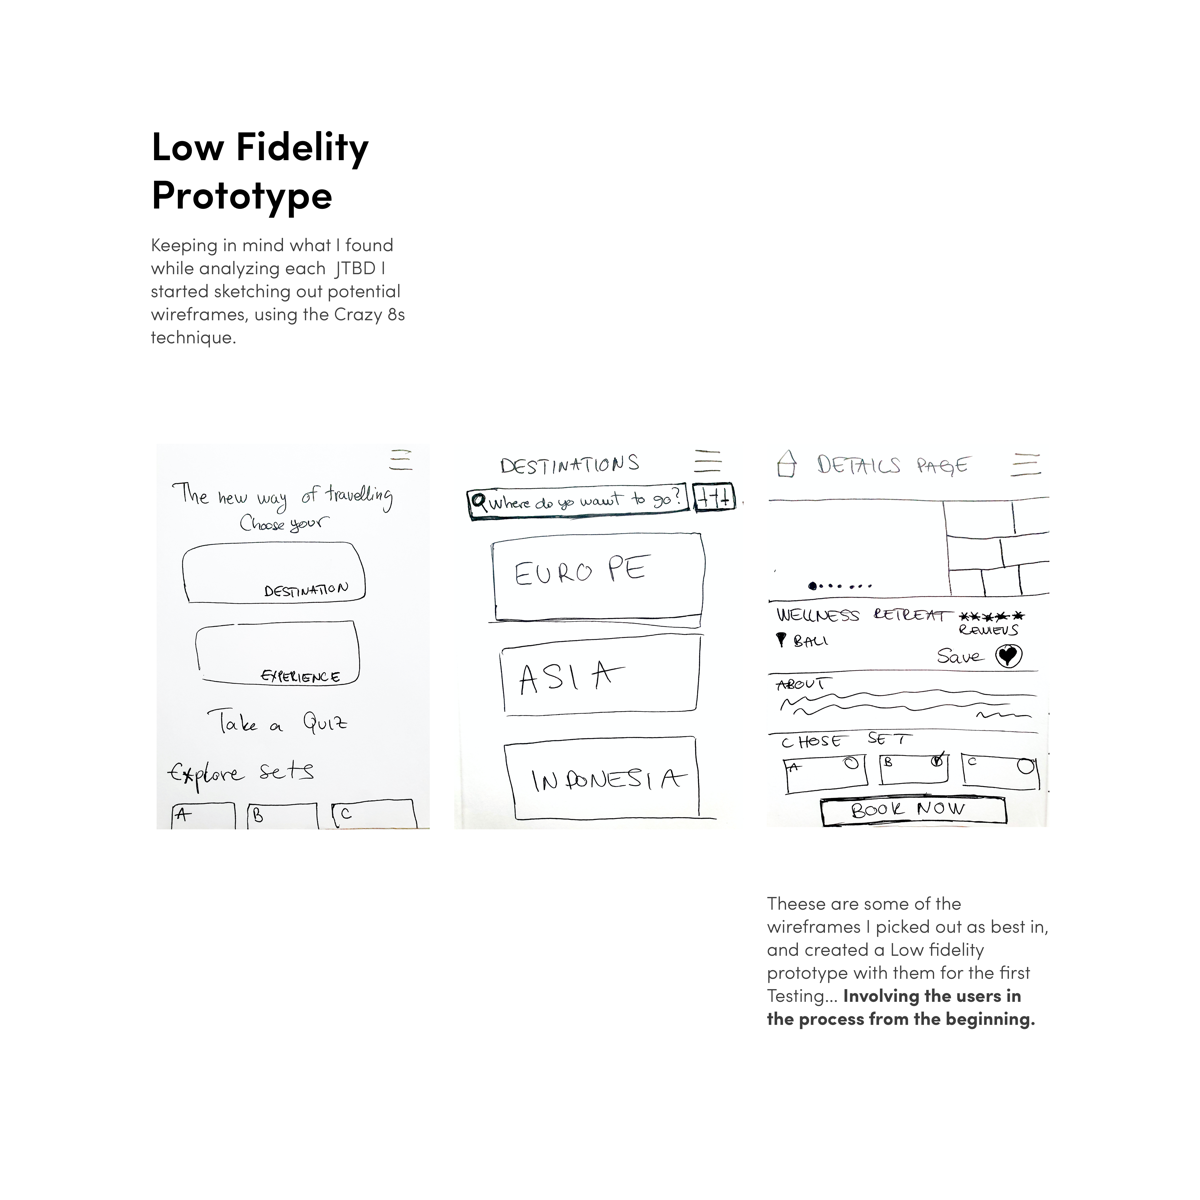 Low Fidelity
Prototype
Keeping in mind what I found
while analyzing each JTBD I
started sketching out potential
wireframes, using the Crazy 8s
technique.
The new way of travelling
Choose your
DESTINATION
EXPERIENCE
Take a Quiz
Explore sets
A B C
DESTINATIONS
Where do yo want to go?
EUROPE
ASIA
INDONESIA
DETAILS PAGE
WELLNESS RETREAT *****
REVIEWS
BALI
Save
ABOUT
CHOSE SET
A B C
BOOK NOW
Theese are some of the
wireframes I picked out as best in,
and created a Low fidelity
prototype with them for the first
Testing... Involving the users in
the process from the beginning.